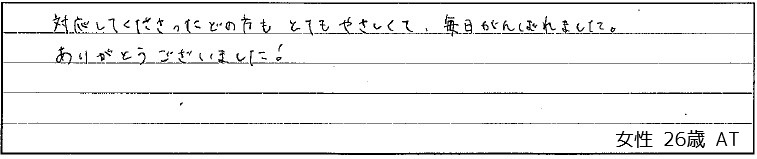 対応してくださったどの方も とてもやさしくて、毎日がんばれました。
ありがとうございました!
女性 26歳 AT